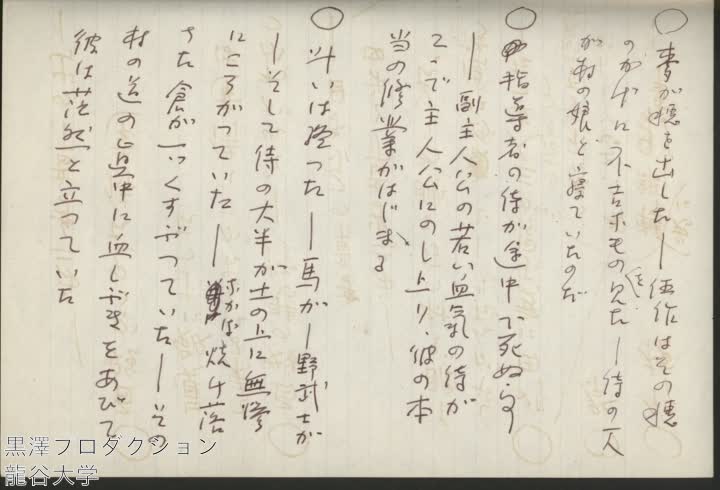 ○ 麦が穂を出した―伍作はその穂
のかげに不吉なものを見た―侍の一人
が村の娘と寝ていたのだ
○ 指導者の侍が途中で死ぬ事
―副主人公の若い血気の侍が
こゝで主人公にのし上り、彼の本
当の修業がはじまる
○ 斗いは終った―馬が―野武士が
―そして侍の大半が土の上に無惨
にころがっていた―なかば焼け落
ちた倉が一つくすぶっていた―その
村の道の真中に血しぶきをあびて
彼は茫然と立っていた
黒澤プロダクション
龍谷大学